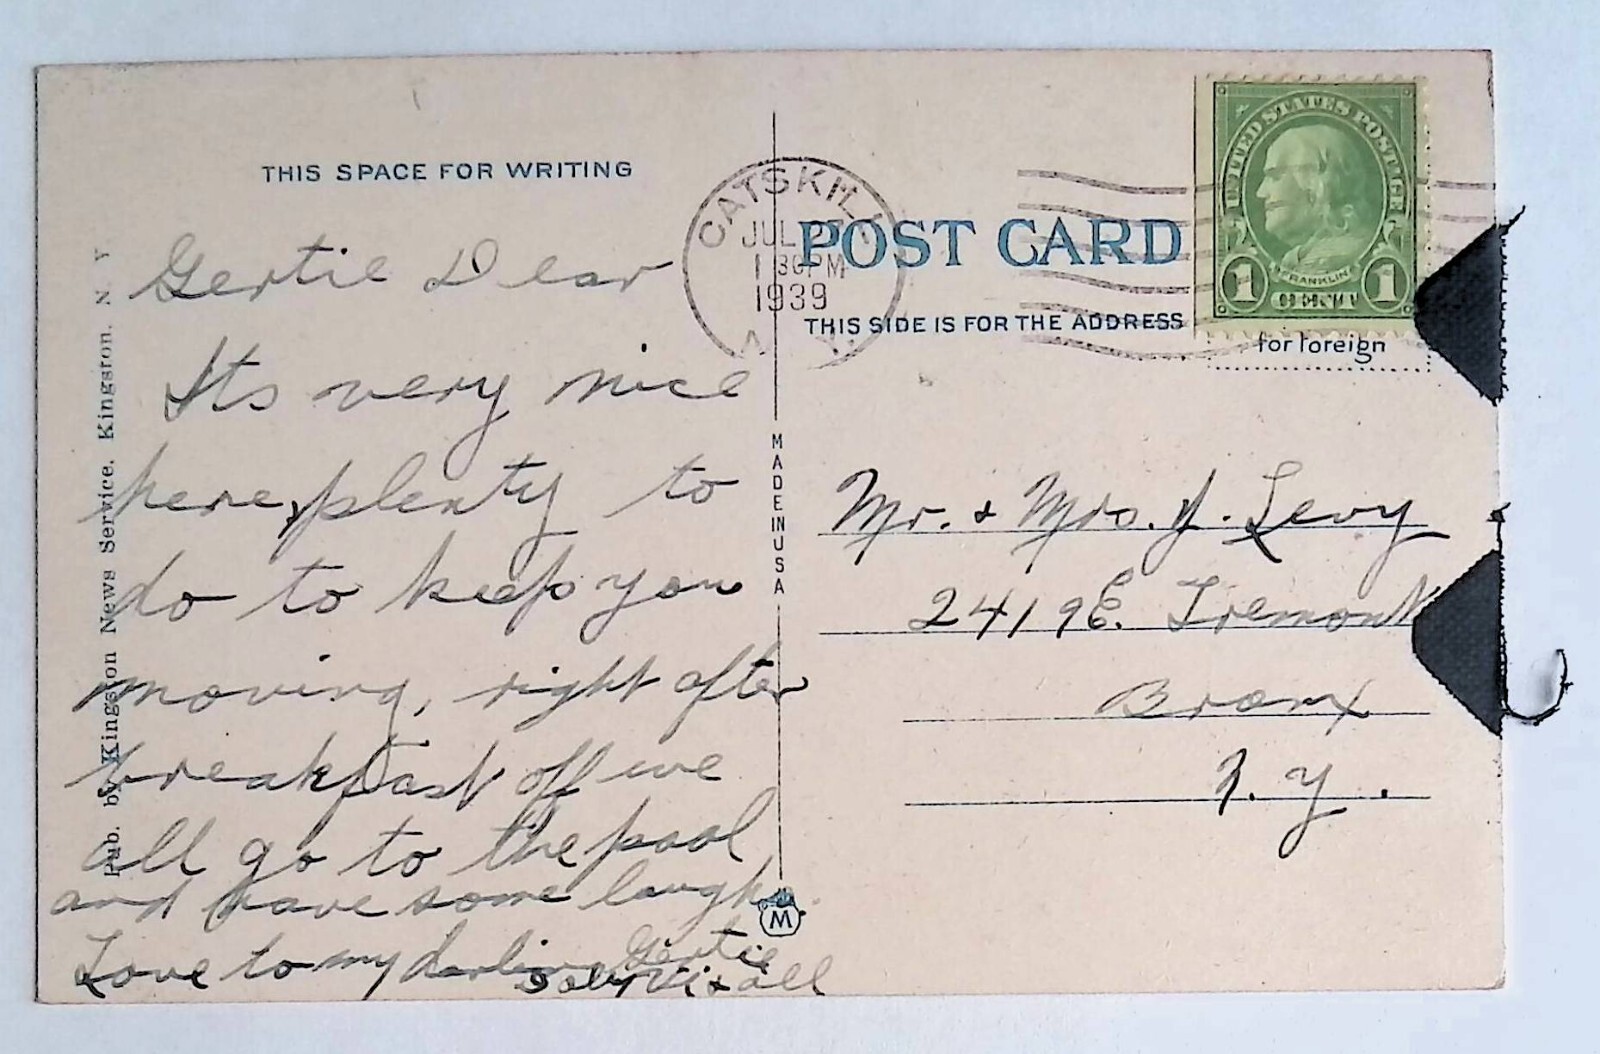 THIS SPACE FOR WRITING
Gertie Dear
Its very nice
here, plenty to
do to keep you
moving, right after
breakfast off we
all go to the pool
and have some laughs.
Love to my darling Gertie
& all
Pub. by Kingston News Service, Kingston, N. Y.
MADE IN USA
M
CATSKILL
JUL
1 30PM
1939
N. Y.
POST CARD
THIS SIDE IS FOR THE ADDRESS
UNITED STATES POSTAGE
FRANKLIN
1 CENT 1
for foreign
Mr. & Mrs. J. Levy
2419 E. Tremont
Bronx
N. Y.